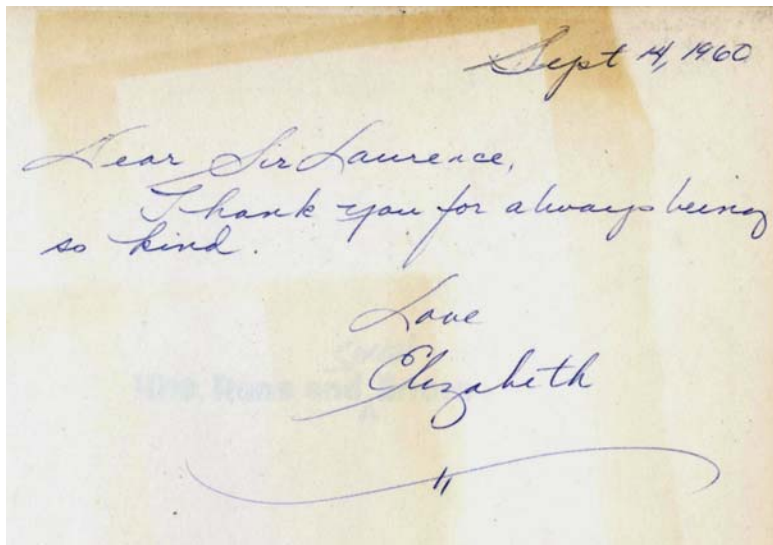 Sept 14, 1960
Dear Sir Laurence,
Thank you for always being
so kind.
Love
Elizabeth